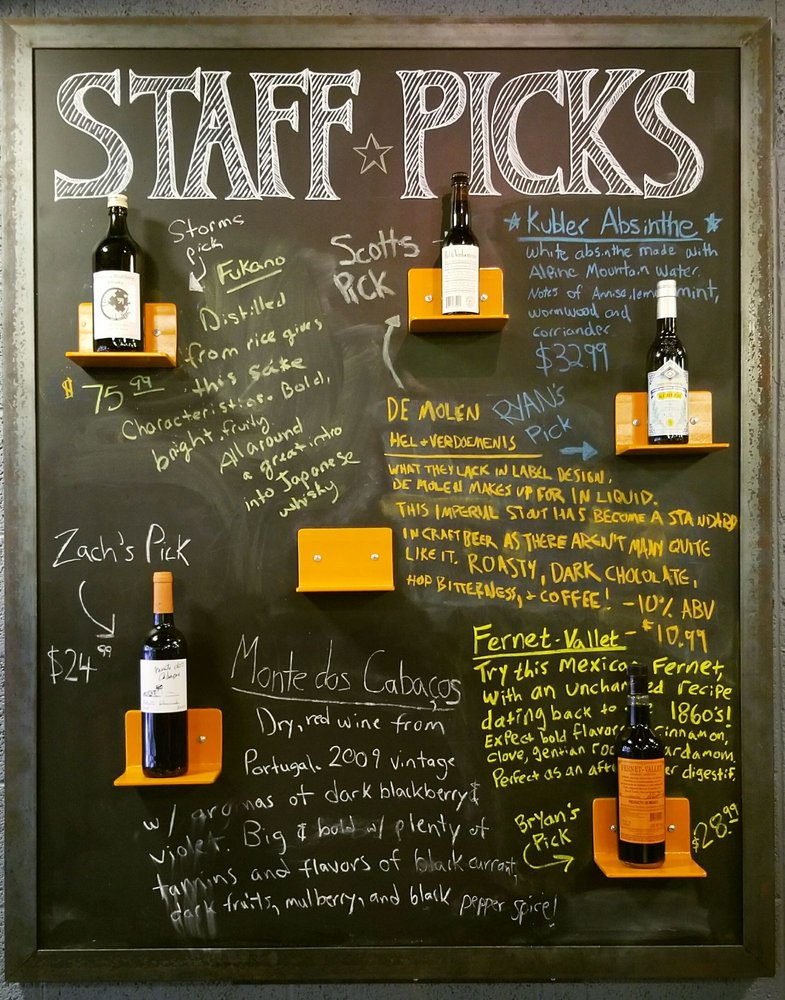 STAFF ☆ PICKS
Storms
pick
Fukano
Distilled
from rice gives
this sake
Characteristics. Bold,
bright, fruity
All around
a great intro
into Japanese
whisky
$75.99
Scott's
Pick
DE MOLEN
HEL + VERDOEMENIS
WHAT THEY LACK IN LABEL DESIGN,
DE MOLEN MAKES UP FOR IN LIQUID.
THIS IMPERIAL STOUT HAS BECOME A STANDARD
IN CRAFT BEER AS THERE AREN'T MANY QUITE
LIKE IT. ROASTY, DARK CHOCOLATE,
HOP BITTERNESS, + COFFEE! -10% ABV
- $10.99
★ Kubler Absinthe ★
White absinthe made with
Alpine Mountain Water.
Notes of Annise, lemon, mint,
wormwood and
corriander
$32.99
RYAN'S
Pick
Zach's Pick
$24.99
Monte dos Cabaços
Dry, red wine from
Portugal. 2009 vintage
w/ aromas of dark blackberry &
violet. Big & bold w/ plenty of
tannins and flavors of black currant,
dark fruits, mulberry, and black pepper spice!
Fernet-Vallet
Try this Mexican Fernet,
with an unchanged recipe
dating back to 1860's!
Expect bold flavor cinnamon,
clove, gentian cardamom.
Perfect as an digestif.
Bryan's
Pick
$28.99
FERNET-VALLET